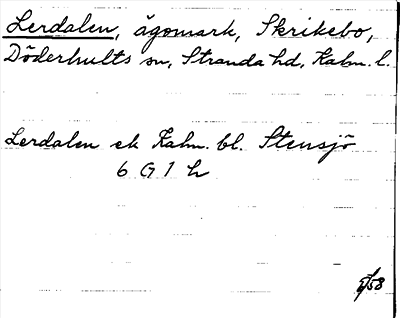 Lerdalen, ägomark, Skrikebo,
Döderhults sn, Stranda hd, Kalm. l.
Lerdalen ek Kalm. bl. Stensjö
6 G 1 h